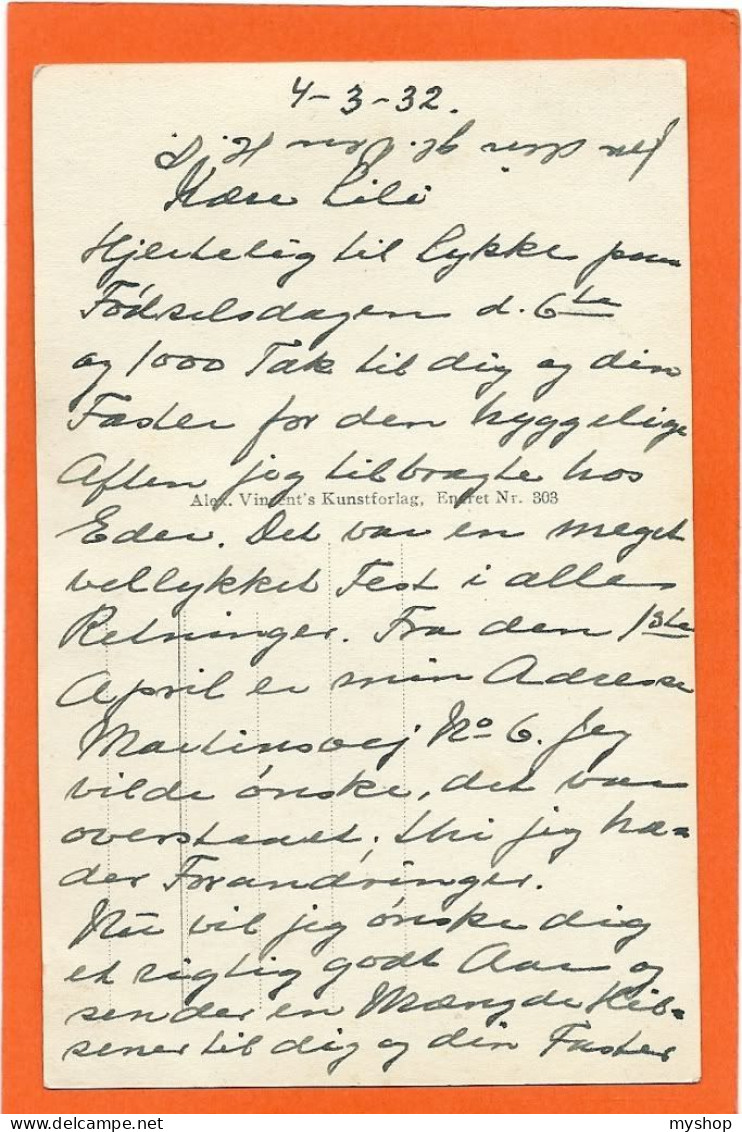 4-3-32.
Kære Lili
Hjertelig til Lykke paa
Fødselsdagen d. 6te
og 1000 Tak til dig og din
Faster for den hyggelige
Aften jeg tilbragte hos
Alex. Vincent's Kunstforlag, Eneret Nr. 303
Eder. Det var en meget
vellykket Fest i alle
Retninger. Fra den 1ste
April er min Adresse
Martinsvej No 6. Jeg
vilde ønske, det var
overstaaet; thi jeg ha-
der Forandringer.
Nu vil jeg ønske dig
et rigtig godt Aar og
sender en Mængde Hil-
sener til dig og din Faster
myshop